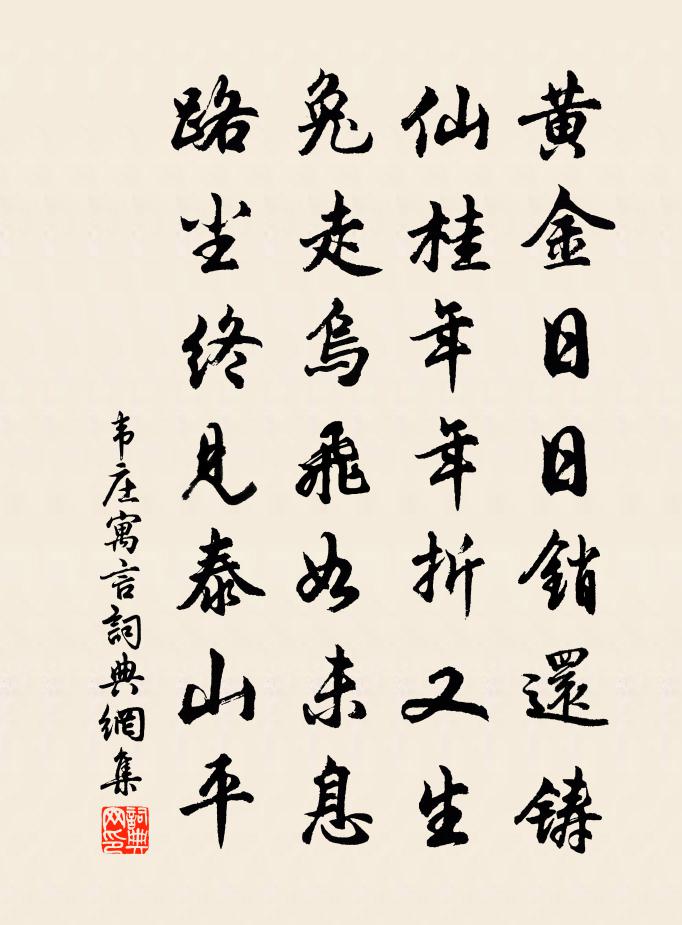 黄金日日銷還鑄
仙桂年年折又生
兔走烏飛如未息
路尘終見泰山平
韦庄寓言詞典網集
詞典网印